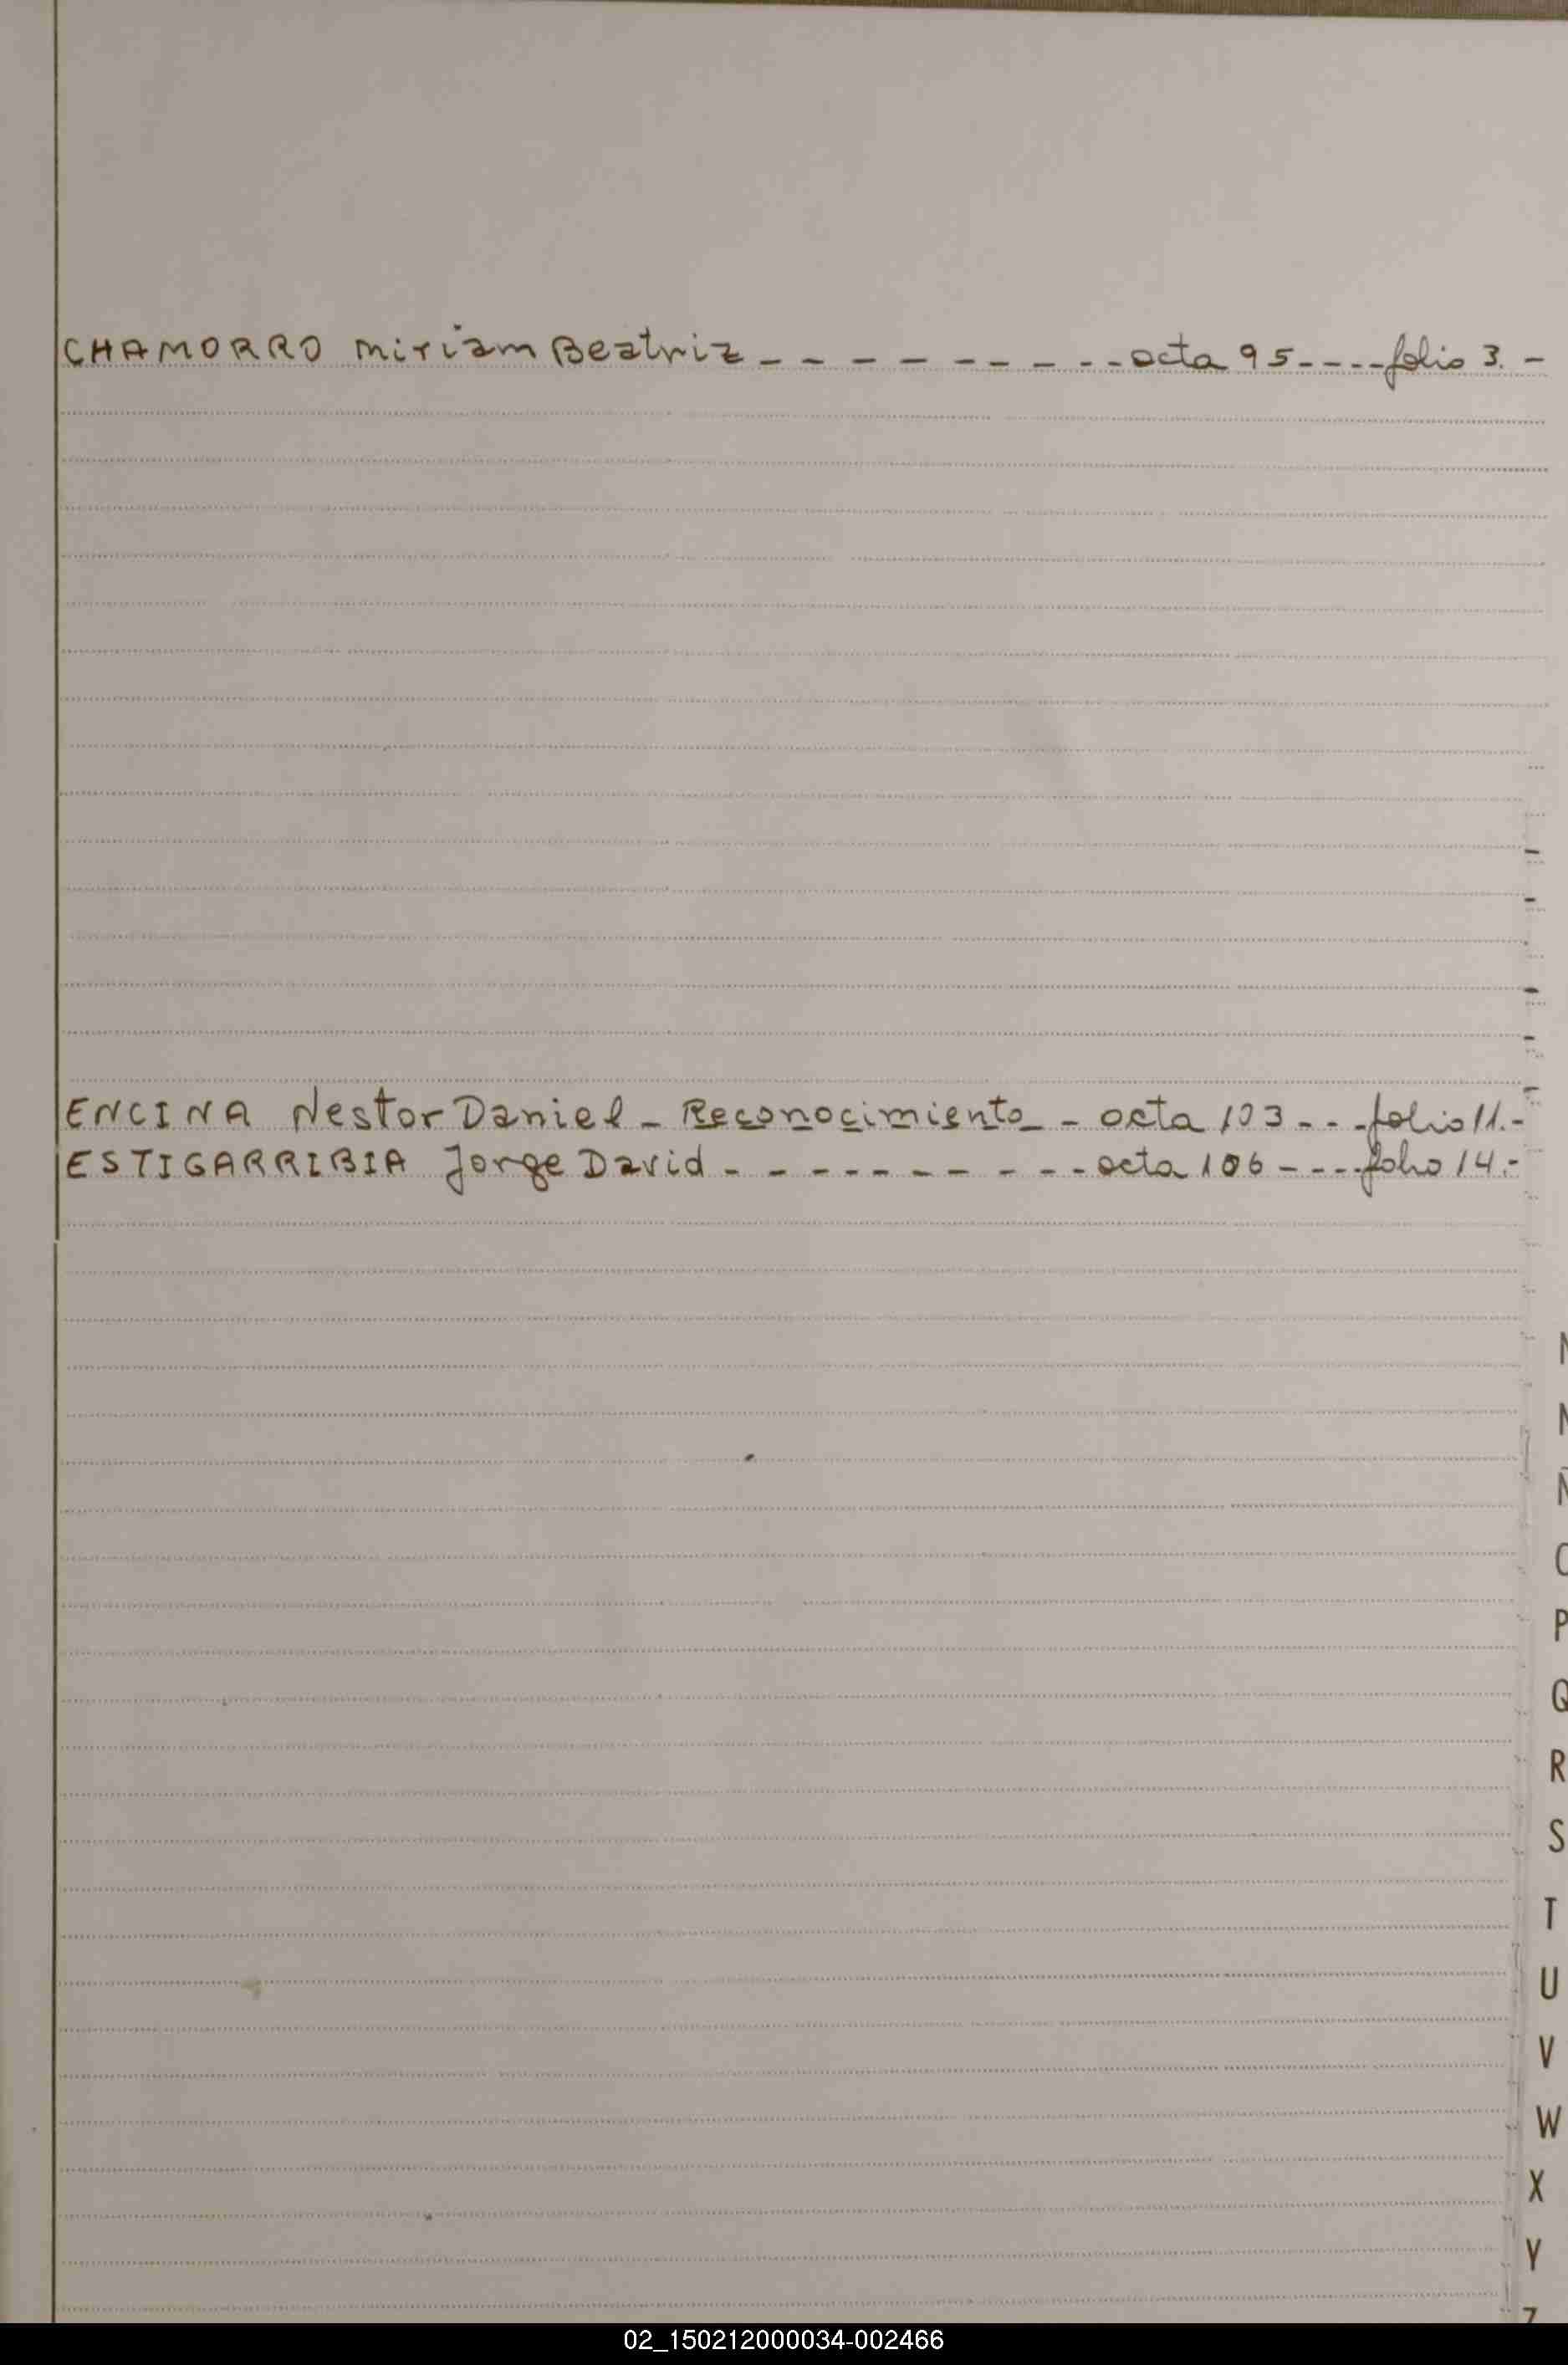 CHAMORRO Miriam Beatriz - - - - - - - - - acta 95 - - - - folio 3. -
ENCINA Nestor Daniel - Reconocimiento - acta 103 - - - folio 11.-
ESTIGARRIBIA Jorge David - - - - - - - - - - acta 106 - - - - folio 14.-
Ñ
P
Q
R
S
T
U
V
W
X
Y
02_150212000034-002466